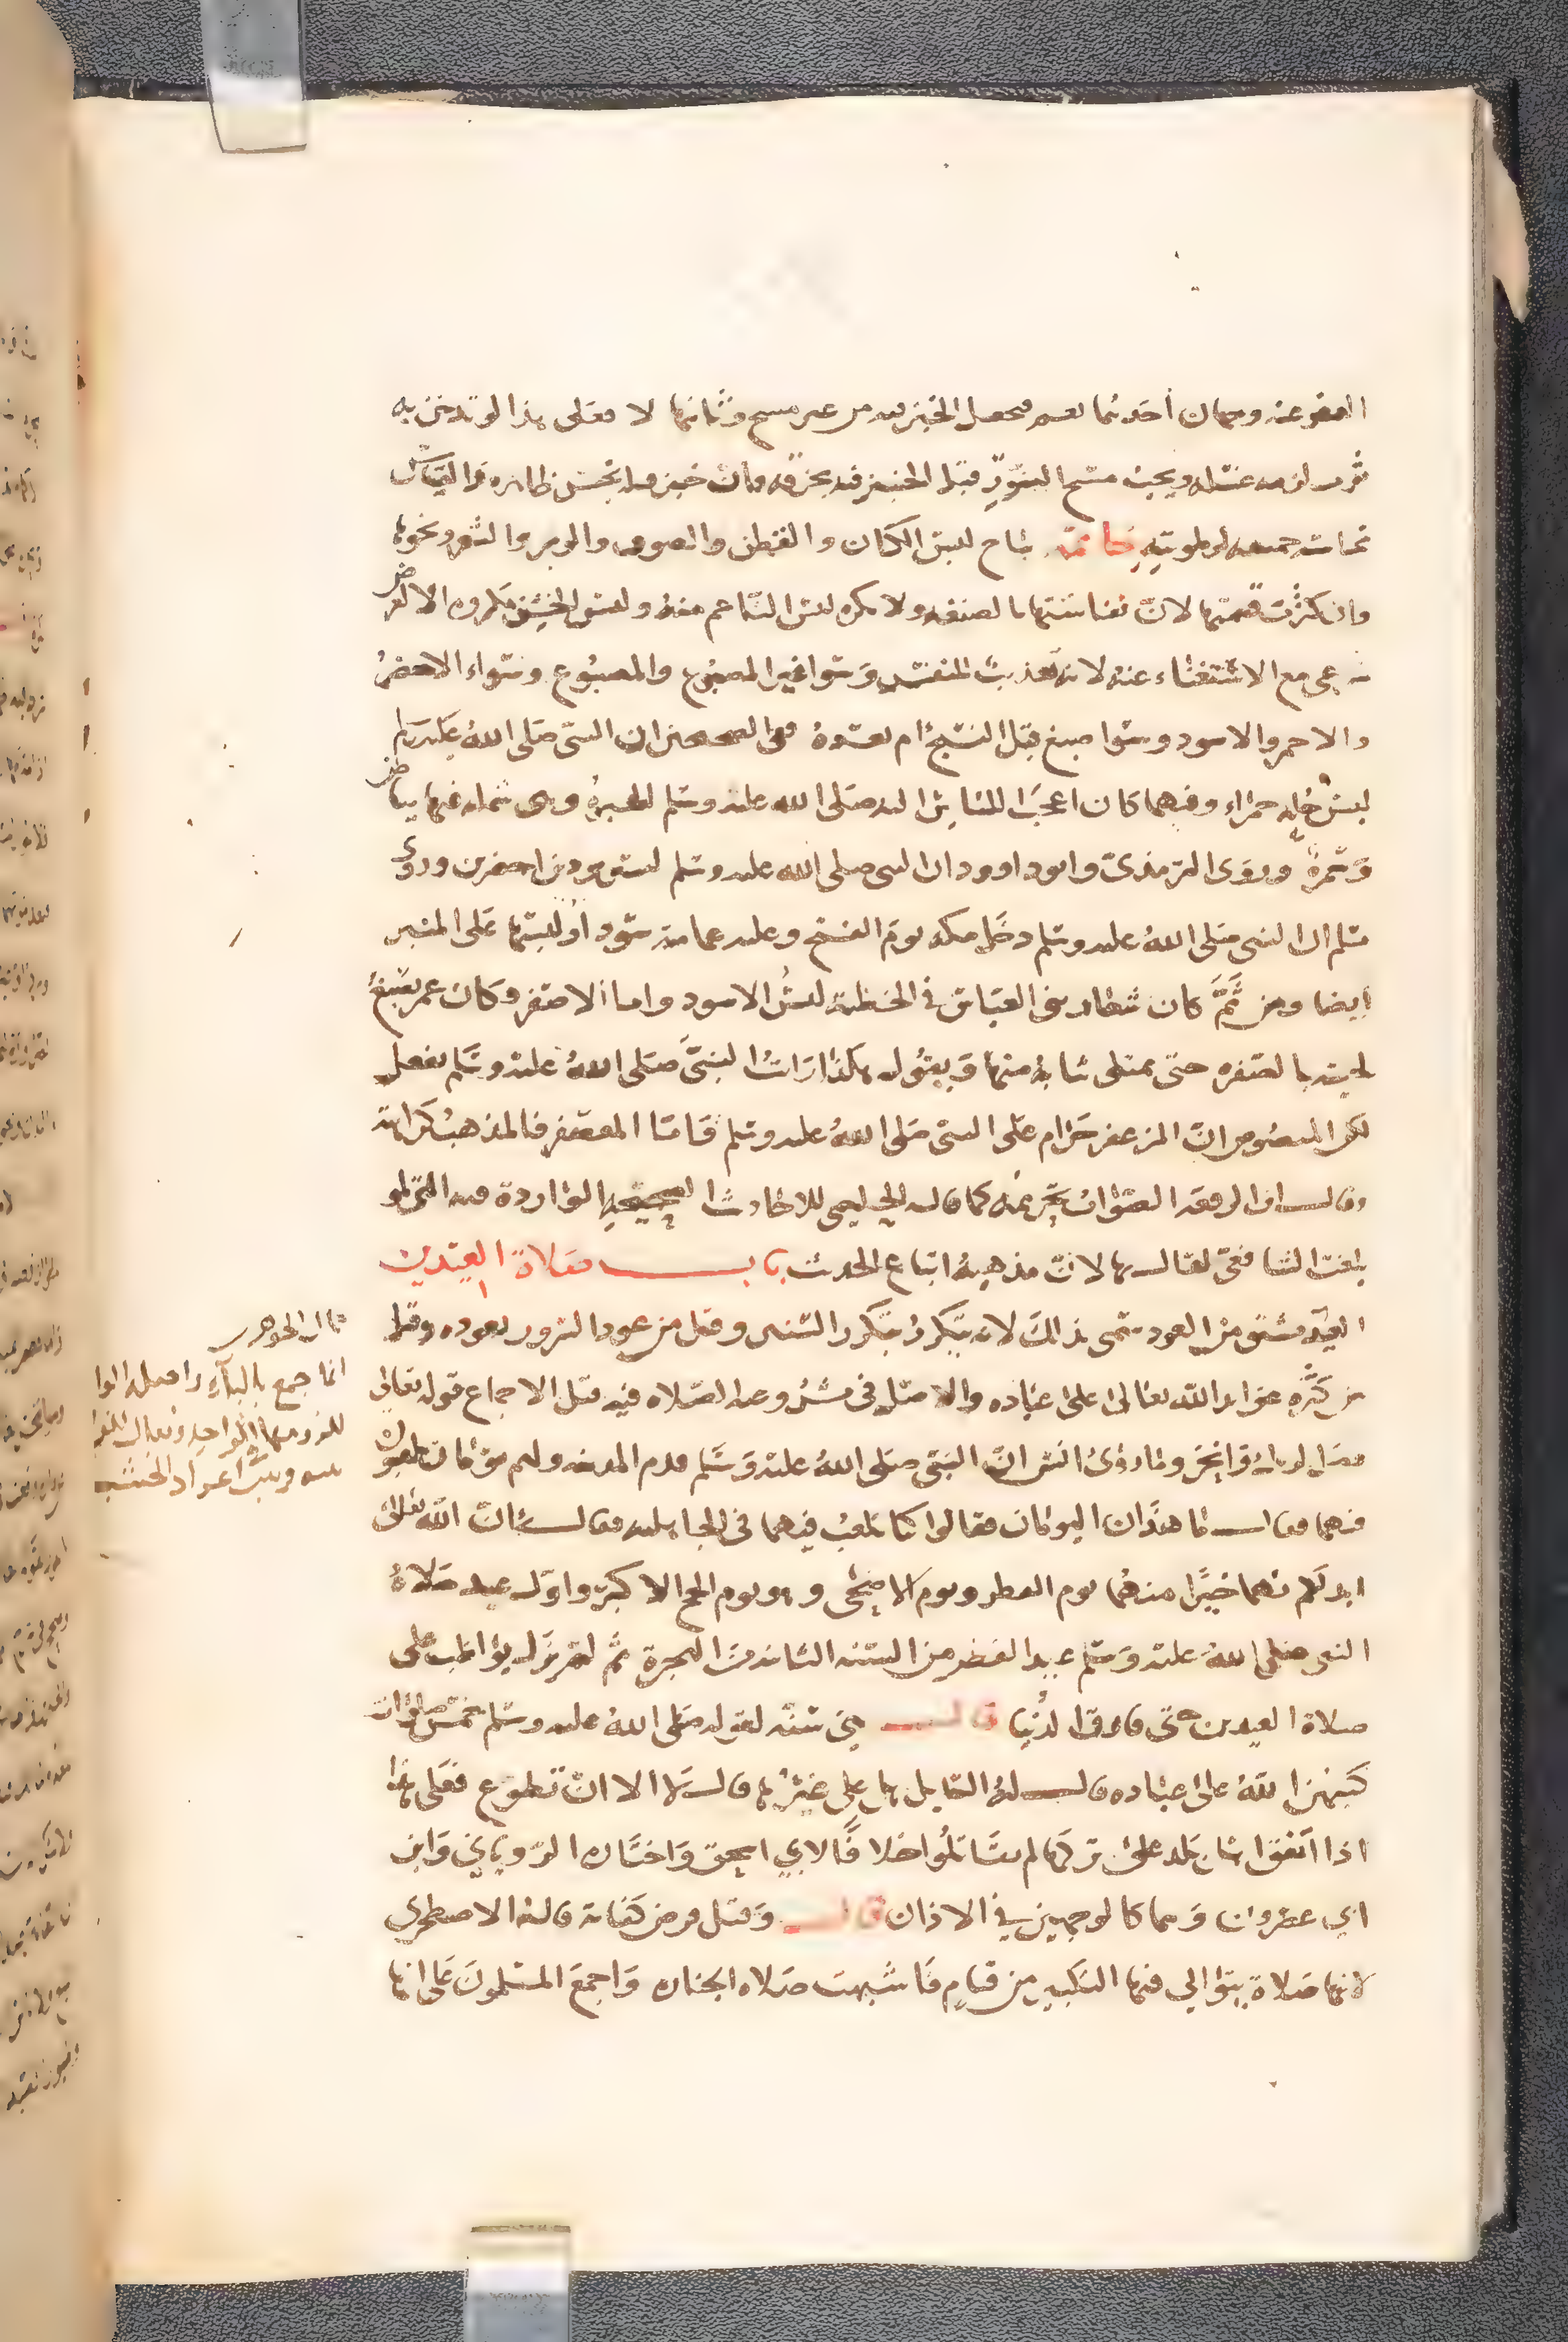 العفو عنه وجهان أحدهما نعم فيحصل الخبز فيه من غير مسح وثانيهما لا فعلى هذا لو تدخن به
ثوب لزمه غسله ويجب مسح التنور قبل الخبز فيه بخرقة فان خبز قبله نجس ظاهره والقياس
نجاسة جميعه لرطوبته خاتمة يباح لبس الكتان والقطن والصوف والوبر والشعر ونحوها
وان كثرت قيمتها لان نفاستها بالصنعة ولا يكره لبس الناعم منه ولبس الخشن مكروه الا لغرض
شرعي مع الاستغناء عنه لانه تعذيب للنفس وسوا غير المصبوغ والمصبوغ وسواء الاخضر
والاحمر والاسود وسوا صبغ قبل النسج أم بعده ففي الصحيحين ان النبي صلى الله عليه وسلم
لبس حلة حمراء وفيهما كان اعجب اللباس اليه صلى الله عليه وسلم الحبرة وهي شملة فيها بياض
وحمرة وروى الترمذي وابو داوود ان النبي صلى الله عليه وسلم لبس بردين اخضرين وروى
مسلم ان النبي صلى الله عليه وسلم دخل مكه يوم الفتح وعليه عمامة سودا ولبسها على المنبر
ايضا ومن ثم كان شعار بني العباس في الخطبة لبس الاسود واما الاصفر وكان عمر يصبغ
لحيته بالصفره حتى يمتلى ثيابه منها ويقول هكذا رايت النبي صلى الله عليه وسلم يفعل
لكن المنصوص ان المزعفر حرام على النبي صلى الله عليه وسلم فاما المعصفر فالمذهب كراهته
وقال ابن الرفعة الصواب تحريمه كما قاله الحليمي للاحاديث الصحيحه الواردة فيه التي لو
بلغت الشافعي لقال بها لان مذهبه اتباع الحديث باب صلاة العيدين
العيد مشتق من العود سمى بذلك لانه يتكرر بتكرر السنين وقيل من عود السرور بعوده وقيل
من كثرة عوايد الله تعالى على عباده والاصل في مشروعية الصلاه فيه قبل الاجماع قوله تعالى
فصل لربك وانحر وما روى انس ان النبي صلى الله عليه وسلم قدم المدينة ولهم يومان يلعبون
فيهما فقال ما هذان اليومان فقالوا كنا نلعب فيهما في الجاهلية فقال ان الله تعالى
ابدلكم بهما خيرا منهما يوم الفطر ويوم الاضحى وهو يوم الحج الاكبر واول عيد صلاه
النبي صلى الله عليه وسلم عيد الفطر من السنه الثانية من الهجرة ثم لم يزل يواظب على
صلاة العيدين حتى فارق الدنيا قال هي سنة لقوله صلى الله عليه وسلم خمس صلوات
كتبهن الله على عباده قال له السايل هل علي غيرها قال لا الا ان تطوع فعلى هذا
اذا اتفق اهل بلد على تركها لم يقاتلوا خلافا لابي اسحق واختاره الروياني وابن
ابي عصرون وهما كالوجهين في الاذان قال وقيل فرض كفاية قاله الاصطخري
لانها صلاة يتوالى فيها التكبير من قيام فاشبهت صلاه الجنازه واجمع المسلمون على انها
قال الجوهري
انما جمع بالياء واصله الواو
للزومها في الواحد ويقال للفرق
بينه وبين اعواد الخشب